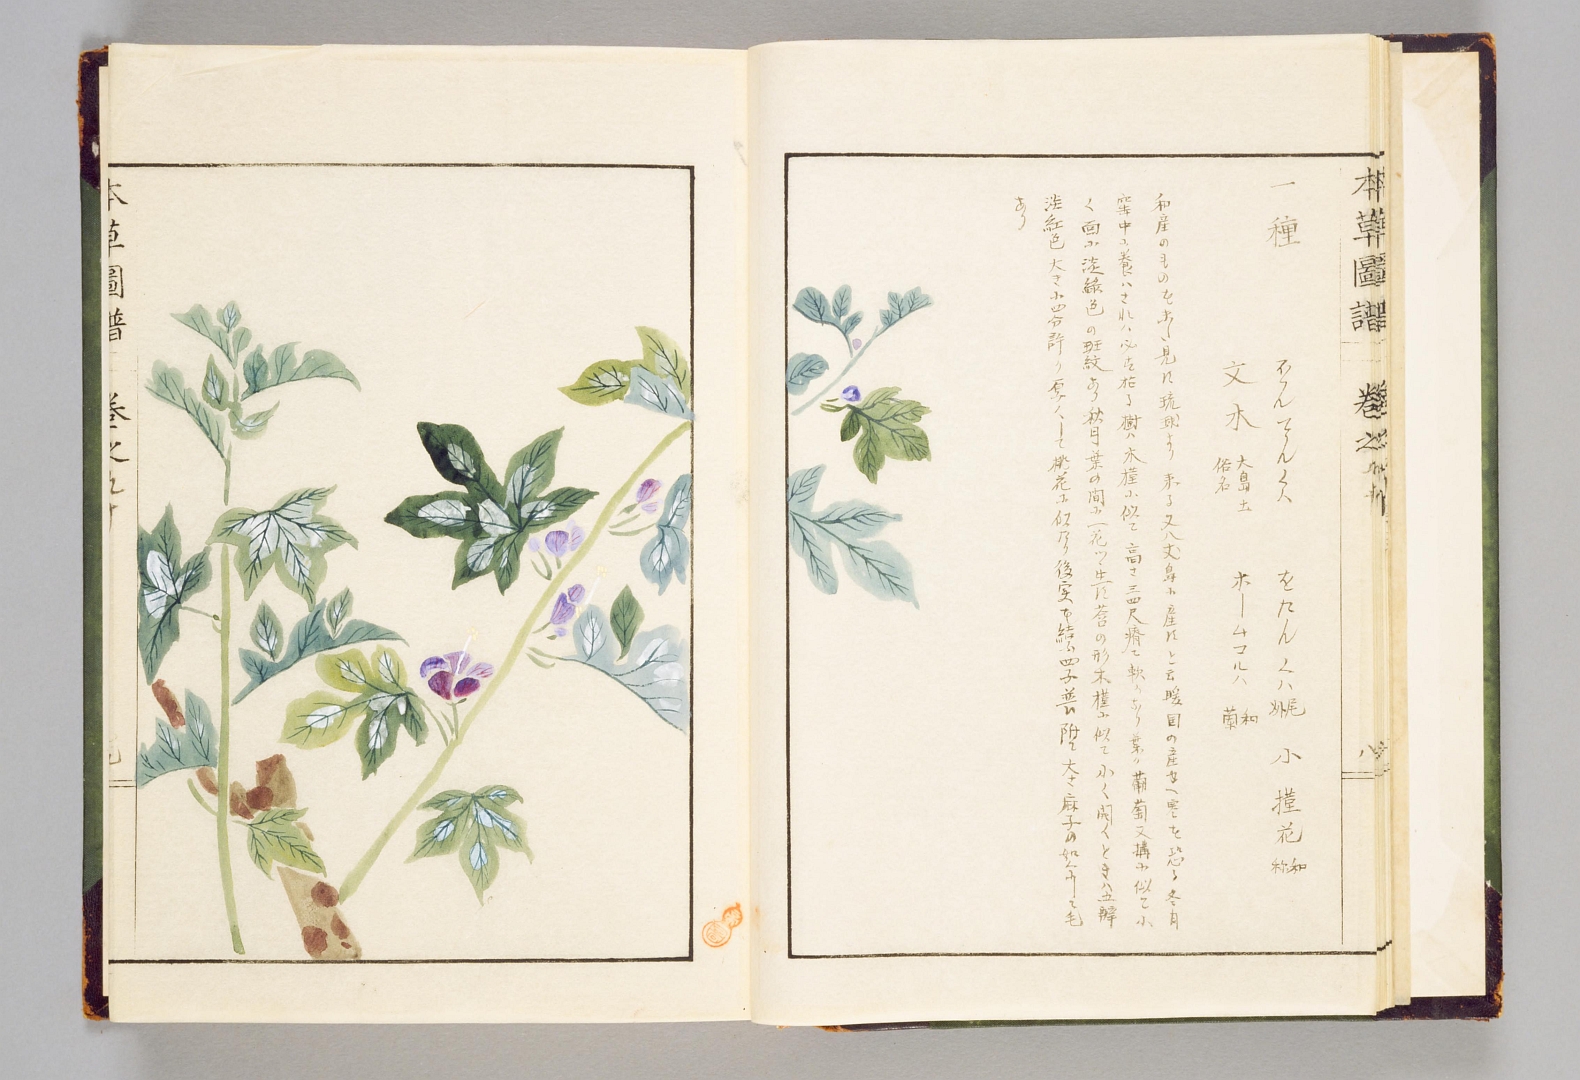 本草圖譜 巻之九十 八
一種
文水 大島土俗名
小槿花 和称
ホームコルハ 和蘭
和産のものを未見に琉球より来る又八丈島に産すと云暖国の産ゆへ寒を恐る冬月
窖中に養ハされハ必す枯る樹ハ木槿に似て高さ三四尺瘠て軟なり葉ハ葡萄又構に似て小
く面に淡緑色の斑紋あり秋月葉の間に一花ツヽ生す莟の形木槿に似て小く開くときハ五瓣
淡紅色大さ四分許り厚くして桃花に似たり後実を結ふ四子並ひ附て大さ麻子の如くにして毛
あり
本草圖譜 巻之九十